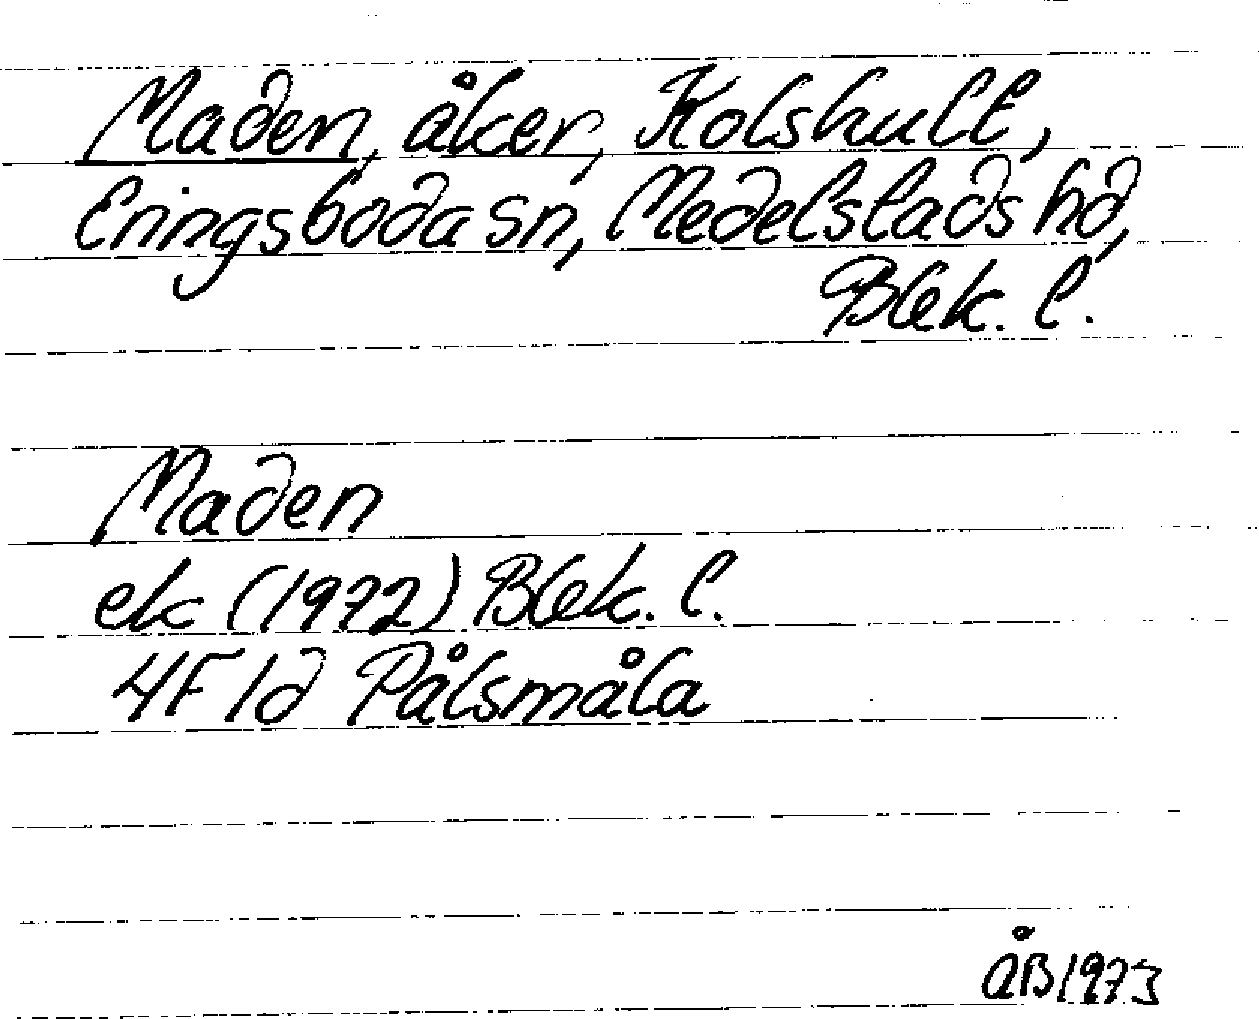 Maden, åker, Kolshult,
Eringsboda sn, Medelstads hd,
Blek. l.
Maden
ek (1972) Blek. l.
4F 1d Pålsmåla
ÅB 1973